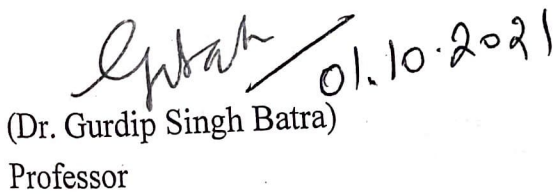 01.10.2021
(Dr. Gurdip Singh Batra)
Professor